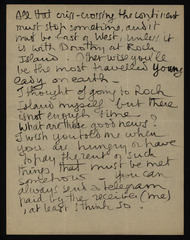 All that criss-crossing the continent
must stop sometime, and it
must be East or West, unless it
is with Dorothy at Rock
Island. Otherwise you'll
be the most travelled young
lady on earth —
I thought of going to Rock
Island myself but there
is not enough time.
What are these good news?
I wish you told me when
you are hungry or have
to pay the rent or such
things that must be met
somehow — you can
always send a telegram
paid by the receiver (me)
, at least I think so.